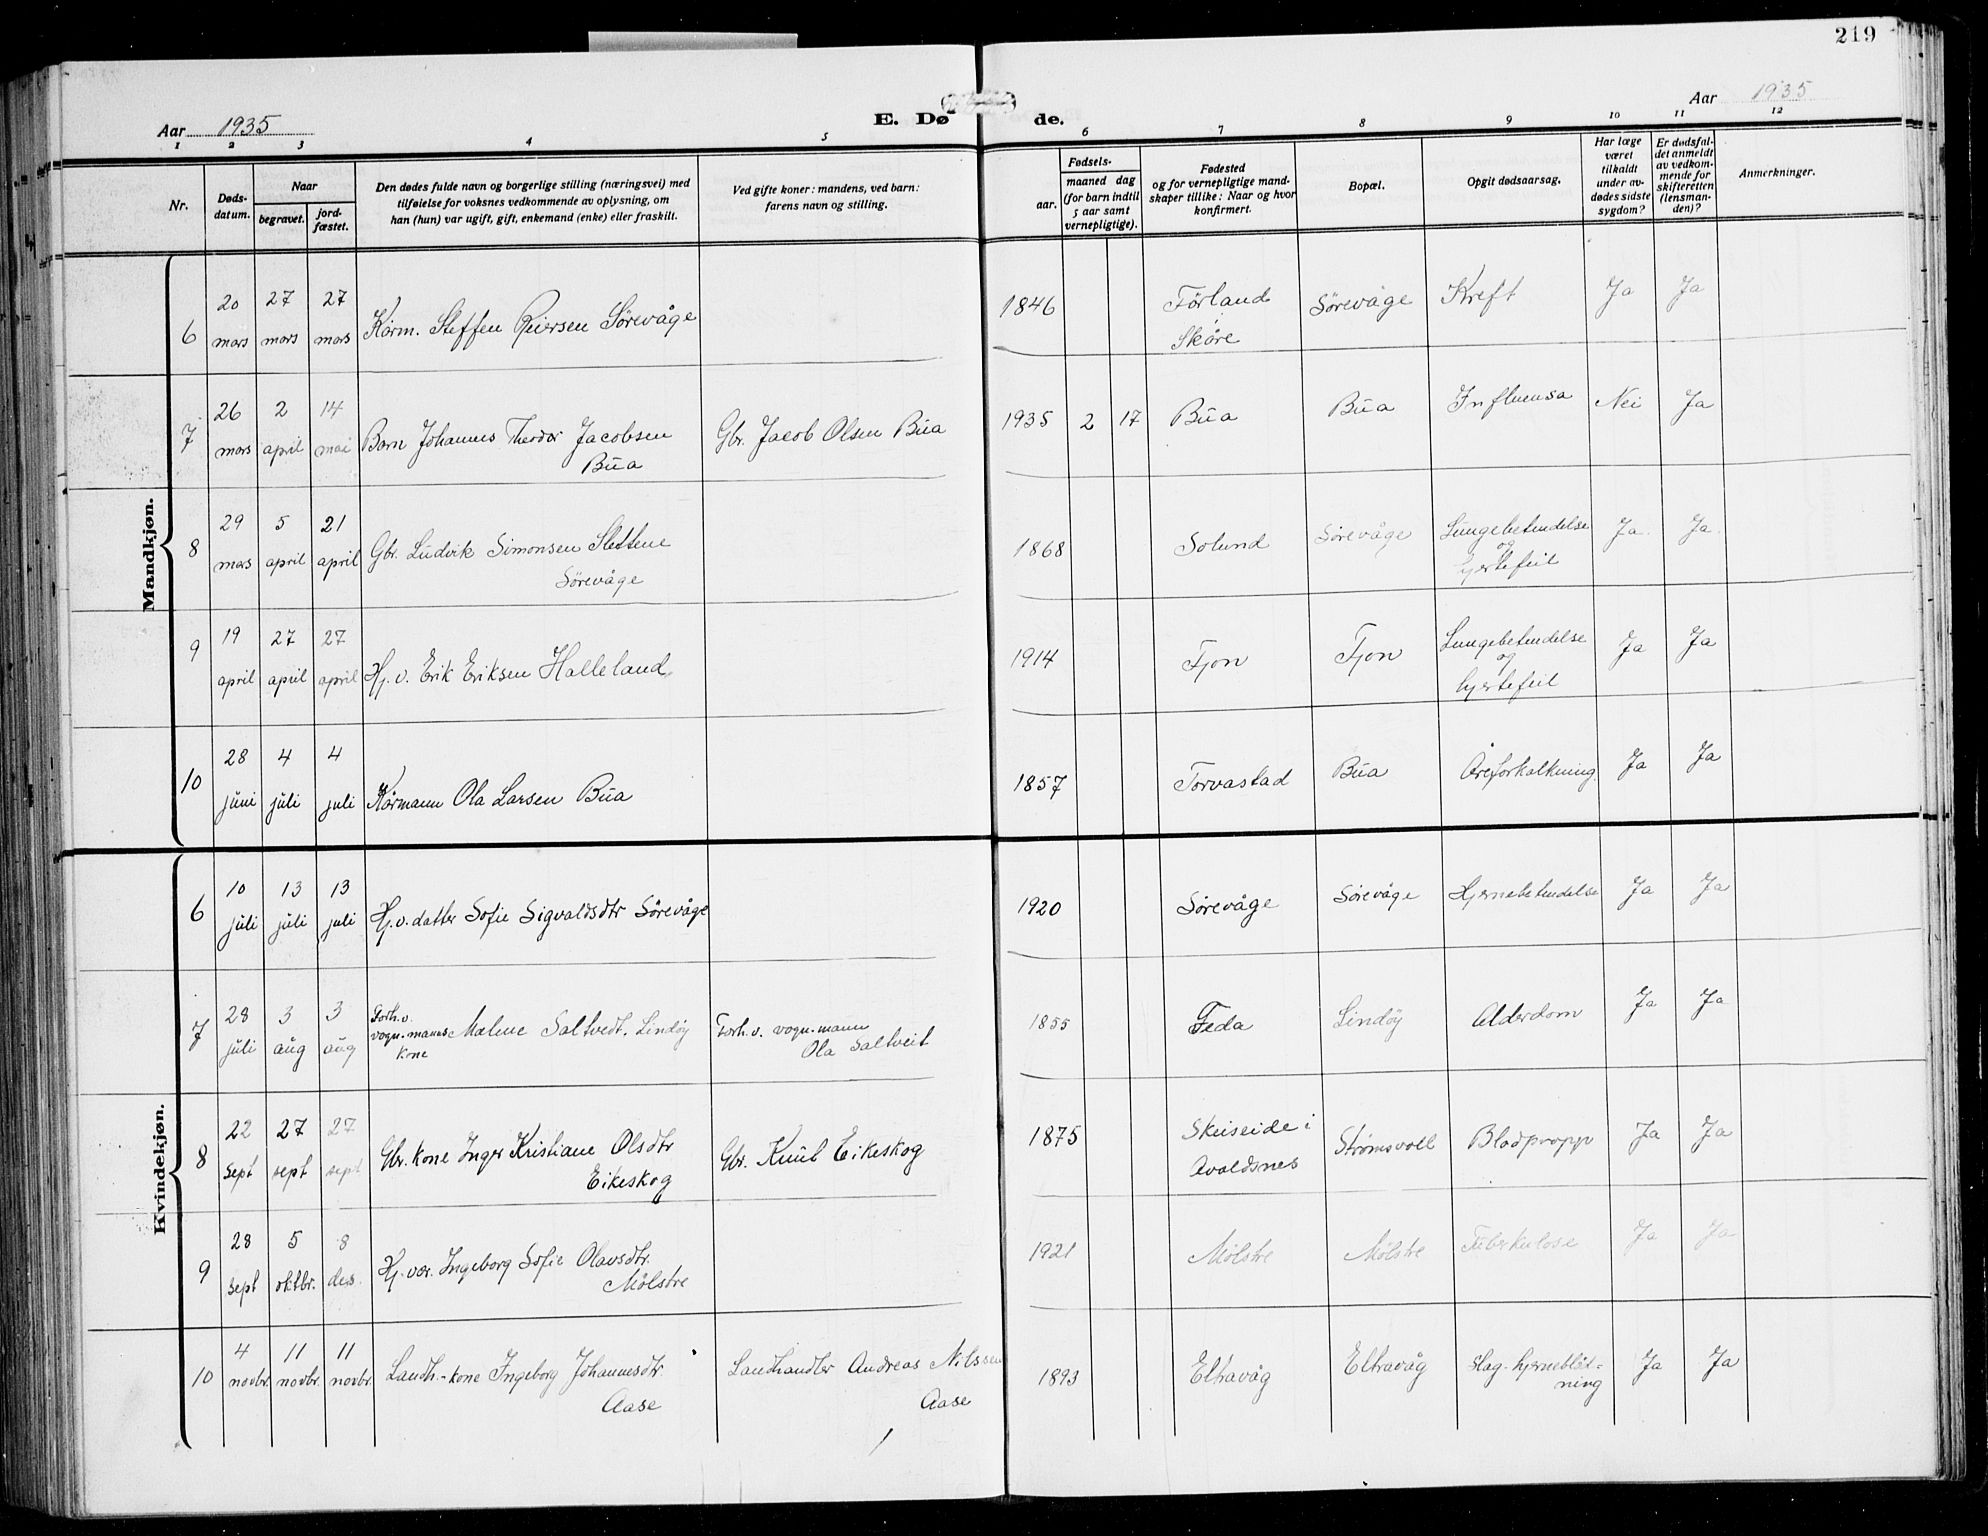 219
Aar 1935
E. Døde.
Aar 1935
1 2 3 4 5 6 7 8 9 10 11 12
Nr.
Døds-
datum.
Naar
begravet.
jord-
fæstet.
Den dødes fulde navn og borgerlige stilling (næringsvei) med
tilføielse for voksnes vedkommende av oplysning, om
han (hun) var ugift, gift, enkemand (enke) eller fraskilt.
Ved gifte koner: mandens, ved barn:
farens navn og stilling.
Fødsels-
aar.
maaned dag
(for barn indtil
5 aar samt
vernepligtige).
Fødested
og for vernepligtige mand-
skaper tillike: Naar og hvor
konfirmert.
Bopæl.
Opgit dødsaarsag.
Har læge
været
tilkaldt
under av-
dødes sidste
sygdom?
Er dødsfal-
det anmeldt
av vedkom-
mende for
skifteretten
(lensman-
den)?
Anmerkninger.
Mandkjøn.
6 20 mars 27 mars 27 mars Kårm. Steffen Reiersen Sørevåge 1846 Førland Skåre Sørevåge Kreft Ja Ja
7 26 mars 2 april 14 mai Barn Johannes Theodor Jacobsen Bua Gbr. Jacob Olsen Bua 1935 2 17 Bua Bua Influensa Nei Ja
8 29 mars 5 april 21 april Gbr. Ludvik Simonsen Slettene Sørevåge 1868 Solund Sørevåge Lungebetendelse og hjertefeil Ja. Ja.
9 19 april 27 april 27 april Hj. v. Erik Eriksen Halleland 1914 Tjon Tjon Lungebetendelse og hjertefeil Ja Ja
10 28 juni 4 juli 4 juli Kårmann Ola Larsen Bua 1857 Torvastad Bua Åreforkalkning. Ja Ja
Kvindekjøn.
6 10 juli 13 juli 13 juli Hj.v. datter Sofie Sigvaldsdtr Sørevåge 1920 Sørevåge Sørevåge Hjernebetendelse Ja Ja
7 28 juli 3 aug 3 aug Forh.v. vogn.manns kone Malene Saltvedt, Lindøy Forh. v. vogn.mann Ola Saltveit 1855 Feda Lindøy Alderdom Ja Ja
8 22 sept 27 sept 27 sept Gbr. kone Inger Kristiane Olsdtr Eikeskog Gbr. Knut Eikeskog 1875 Skeiseide i Avaldsnes Strømsvoll Blodpropp Ja Ja
9 28 sept 5 oktbr. 8 des. Hj. vær. Ingeborg Sofie Olavsdtr. Mølstre 1921 Mølstre Mølstre Tuberkulose Ja Ja
10 4 novbr. 11 novbr. 11 novbr. Landh.-kone Ingeborg Johannesdtr. Aase Landhandler Andreas Nilssen Aase 1893 Eltravåg Eltravåg Slag-hjerneblød-ning Ja Ja